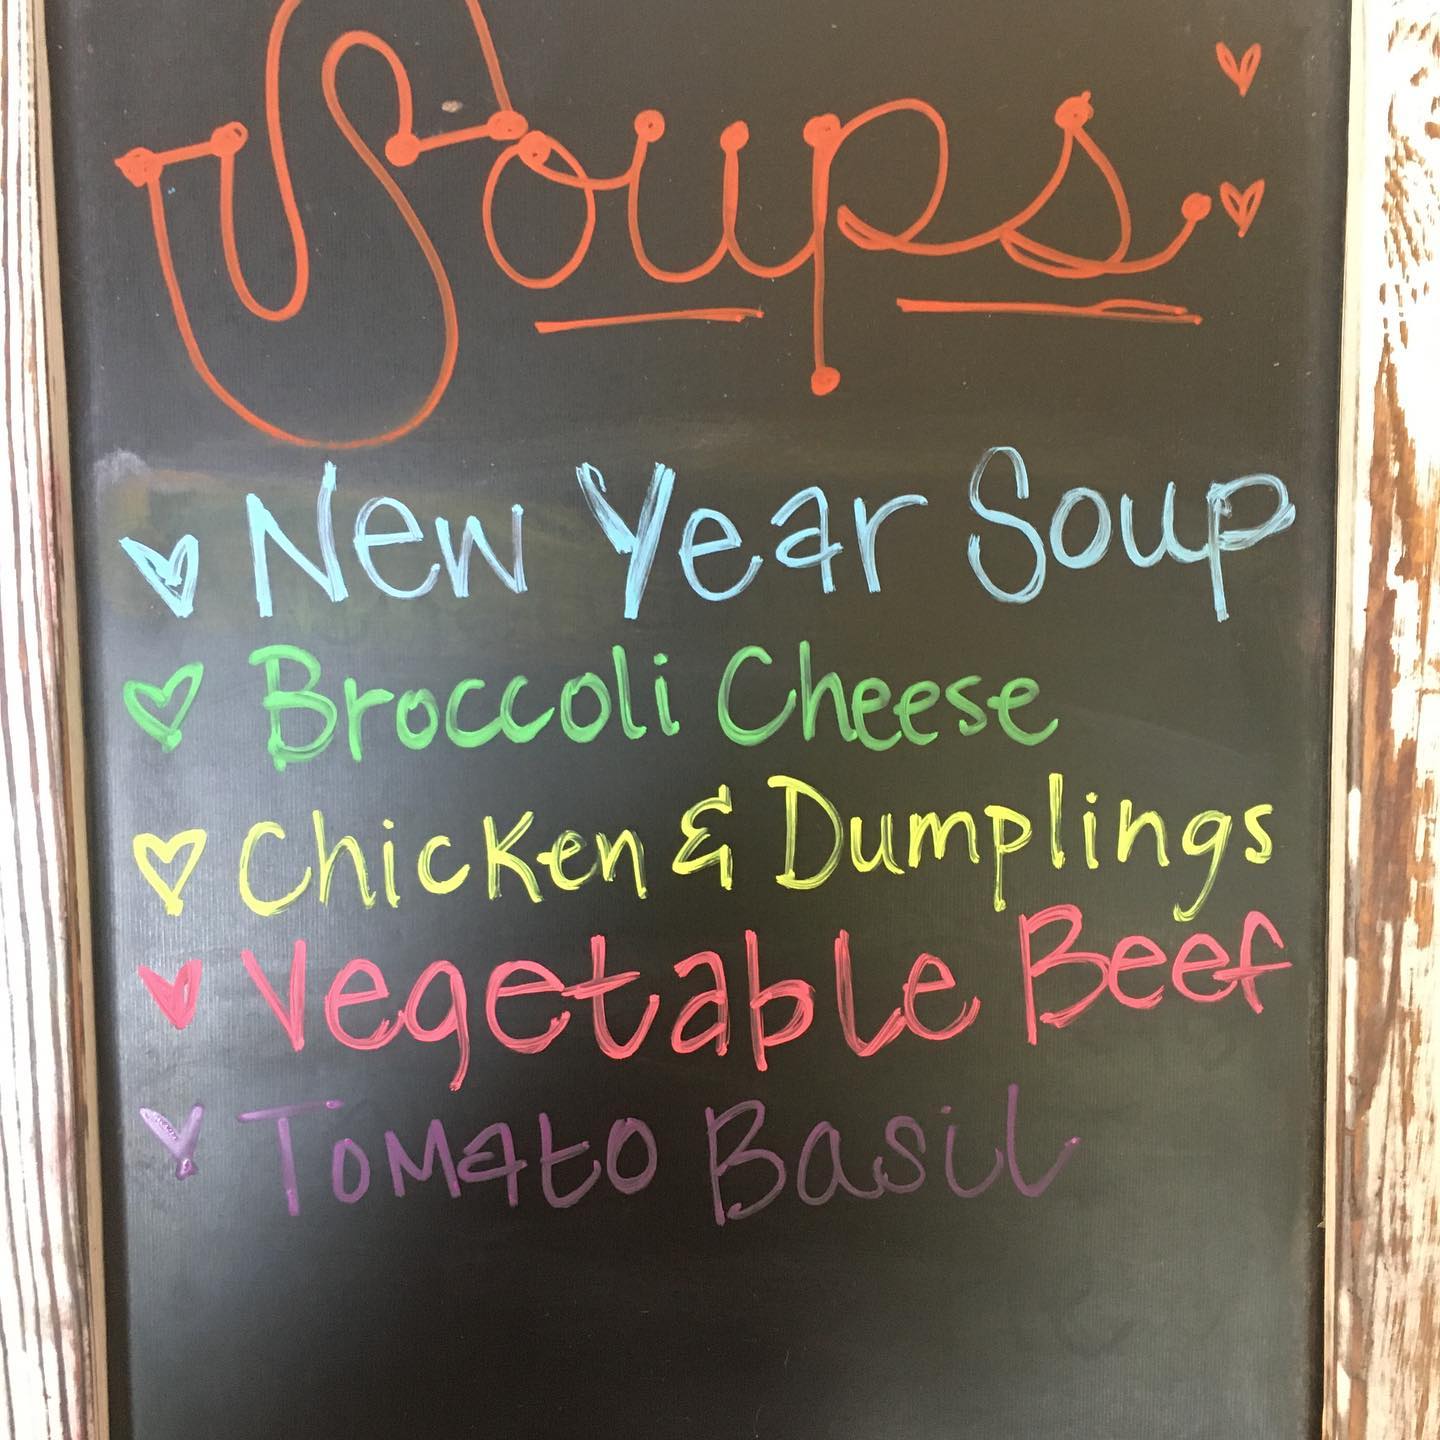 Soups
New Year Soup
Broccoli Cheese
Chicken & Dumplings
Vegetable Beef
Tomato Basil